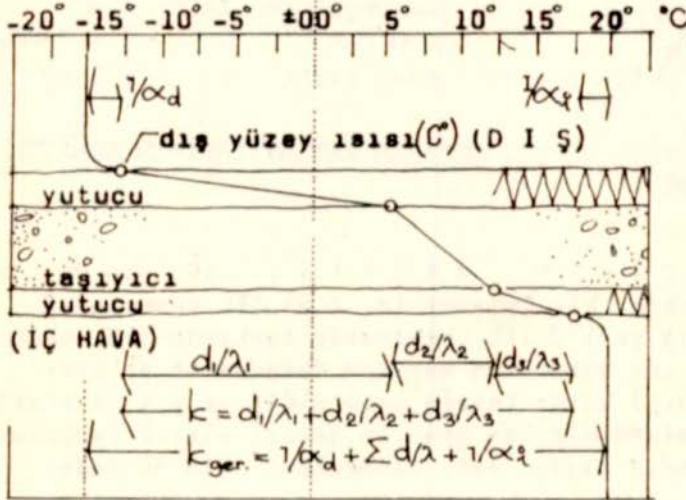 -20° -15° -10° -5° ±00° 5° 10° 15° 20° °C
1/αd 1/αi
dış yüzey ısısı(C°) (D I Ş)
yutucu
taşıyıcı
yutucu
(İÇ HAVA)
d1/λ1 d2/λ2 d3/λ3
k = d1/λ1 + d2/λ2 + d3/λ3
kger. = 1/αd + ∑ d/λ + 1/αi